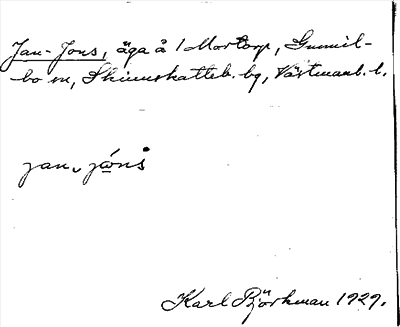 Jan-Jons, äga å 1 Mortorp, Gunnil-
bo sn, Skinnskatteb. bg, Västmanl. l.
jan jōns
Karl Björkman 1929.